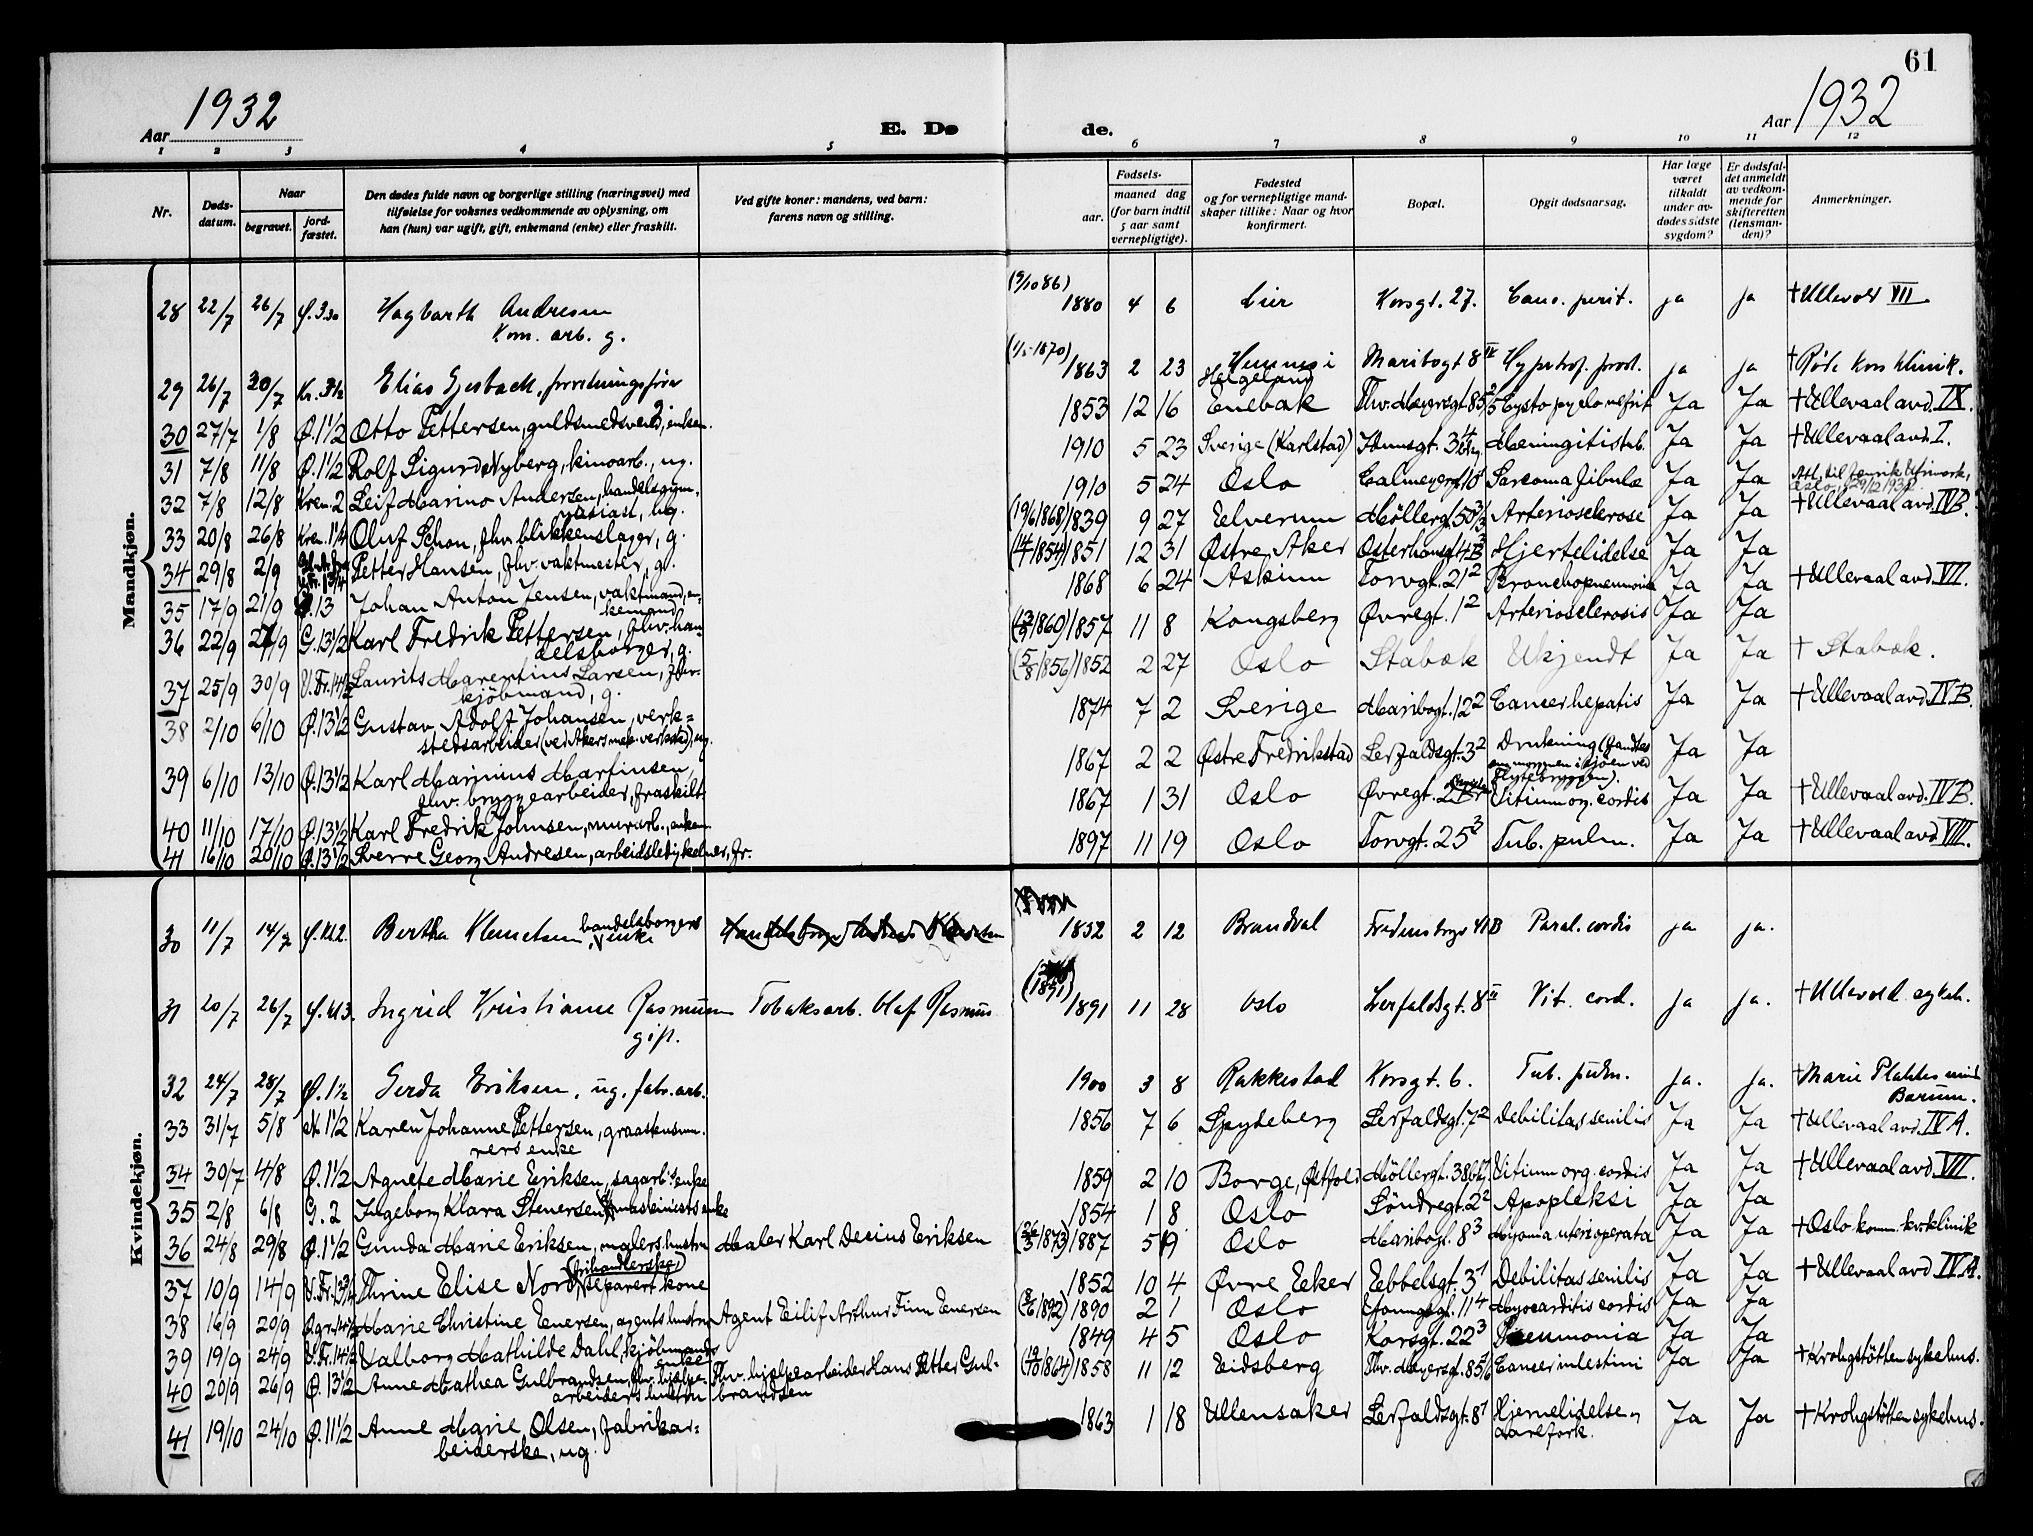 61
Aar 1932
E. Dø
de.
Aar 1932
1 2 3 4 5 6 7 8 9 10 11 12
Nr.
Døds-
datum.
Naar
begravet.
jord-
fæstet.
Den dødes fulde navn og borgerlige stilling (næringsvei) med
tilføielse for voksnes vedkommende av oplysning, om
han (hun) var ugift, gift, enkemand (enke) eller fraskilt.
Ved gifte koner: mandens, ved barn:
farens navn og stilling.
Fødsels-
aar.
maaned dag
(for barn indtil
5 aar samt
vernepligtige).
Fødested
og for vernepligtige mand-
skaper tillike: Naar og hvor
konfirmert.
Bopæl.
Opgit dødsaarsag.
Har læge
været
tilkaldt
under av-
dødes sidste
sygdom?
Er dødsfal-
det anmeldt
av vedkom-
mende for
skifteretten
(lensman-
den)?
Anmerkninger.
Mandkjøn.
28 22/7 26/7 Ø. 3.30 Hagbarth Andresen 1880 4 6 Lier Korsgt. 27. Canc. perit. ja ja † Ullevol VII
Kom. arb. g.
29 26/7 30/7 Elias forretningsfører (1/5-1870) 1863 2 23 Helgeland Maribogt 8 IV Hypertrof. prost. ja ja † Røde Kors klinik.
30 27/7 1/8 Ø. 1 1/2 Otto Pettersen, guldsmedsvend, enkem. 1853 12 16 Enebak Thv. Meyersgt. 85 Cysto pyelo nefrit Ja Ja † Ullevaal avd. IX.
31 7/8 11/8 Ø. 1 1/2 Rolf Sigurd Nyberg, kinoarb., ug. 1910 5 23 Sverige (Karlstad) Meningitis tub. Ja Ja † Ullevaal avd. I.
32 7/8 12/8 Krem. 2 Leif Marino Andersen, handelsgym-
nasiast, ug. 1910 5 24 Oslo Calmeyersgt. 10 Sarcoma fibulæ Ja Ja
33 20/8 26/8 Krem. 1 1/4 Oluf Schon, fhv. blikkenslager, g. (19/6 1868) 1839 9 27 Elverum Møllergt. 50 Arteriosclerose Ja Ja † Ullevaal avd. IV B.
34 29/8 2/9 Petter Hansen, fhv. vaktmester, g. 1851 12 31 Østre Aker Osterhausgt. Hjertelidelse Ja Ja
35 17/9 21/9 Ø. 13 Johan Anton Jensen, vaktmand, en-
kemand 1868 6 24 Askim Torvgt. 21 2 Bronchopneumonia Ja Ja † Ullevaal avd. VII.
36 22/9 27/9 G. 13 1/2 Karl Fredrik Pettersen, fhv. han-
delsborger, g. 1857 11 8 Kongsberg Øvregt. 1 2 Arteriosclerosis Ja Ja
37 25/9 30/9 V. Fr. 14 1/2 Laurits Marentius Larsen, fhv.
kjöbmand, g. (5/8 1856) 1852 2 27 Oslo Stabæk Ukjendt Ja Ja † Stabæk.
38 2/10 6/10 Ø. 13 1/2 Gustav Adolf Johansen, verk-
stedsarbeider (ved Akers mek. verksted), ug. 1874 7 2 Sverige Maribogt. 12 2 Cancer hepatis Ja Ja † Ullevaal avd. IV B.
39 6/10 13/10 Ø. 13 1/2 Karl Marinius Martinsen,
fhv. bryggearbeider, fraskilt. 1867 2 2 Østre Fredrikstad Lerfaldsgt. 3 2 Drukning (fandtes
om morgenen i sjöen ved
Ja Ja
40 11/10 17/10 Ø. 13 1/2 Karl Fredrik Johnsen, murarb., enkem. 1867 1 31 Oslo Øvregt. Vitium org. cordis Ja Ja † Ullevaal avd. IV B.
41 16/10 20/10 Ø. 13 1/2 Sverre Georg Andresen, arbeidsledig kelner, fr. 1897 11 19 Oslo Torvgt. 25 3 Tub. pulm. Ja Ja † Ullevaal avd. VIII.
Kvindekjøn.
30 11/7 14/7 Ø. kl 2. Bertha Klemetsen, handelsborgers
enke 1832 2 12 Brandval Fredensborgv 41 B Paral. cordis ja ja.
31 20/7 26/7 Ø. kl 3. Ingrid Kristiane Rasmusen Tobaksarb. Olaf Rasmus 1891 11 28 Oslo Lerfaldsgt. 8 II Vit. cord. ja ja. † Ullevold sykeh.
gift.
32 24/7 28/7 Ø. 1 1/2 Gerda Eriksen, ug. fabr. arb. 1900 3 8 Rakkestad Korsgt. 6. Tub. pulm. ja. ja. † Marie Plahtes minde
Bærum.
33 31/7 5/8 N. 1 1/2 Karen Johanne Pettersen,
enke 1856 7 6 Spydeberg Lerfaldsgt. 7 2 Debilitas senilis Ja Ja † Ullevaal avd. IV A.
34 30/7 4/8 Ø. 1 1/2 Agnete Marie Eriksen, sagarb.s enke 1859 2 10 Borge, Østfold Møllergt. 38 Vitium org. cordis Ja Ja † Ullevaal avd. VII.
35 2/8 6/8 G. 2 Ingeborg Klara Stenersen, maskinists enke 1854 1 8 Oslo Söndregt. 2 2 Apopleksi Ja Ja
36 24/8 29/8 Ø. 1 1/2 Gunda Marie Eriksen, malers hustru Maler Karl Decius Eriksen 1887 5 9 Oslo Maribogt. 8 3 Myoma uteri operata Ja Ja † Oslo komm. kv.klinik
37 10/9 14/9 V. Fr. Thrine Elise Nord, separert kone 1852 10 4 Øvre Eeker Ebbelsgt. 3 1 Debilitas senilis Ja Ja † Ullevaal avd. IV A.
38 16/9 20/9 Marie Christine Enersen, agents hustru Agent Eilif Arthur Finn Enersen 1890 2 1 Oslo Youngsgt. 11 4 Myocarditis cordis Ja Ja
39 19/9 24/9 V. Fr. 14 1/2 Valborg Mathilde Dahl, kjöbmands
enke 1849 4 5 Oslo Korsgt. 22 3 Pneumonia Ja Ja
40 20/9 26/9 Ø. 13 1/2 Anne Mathea Gulbrandsen, fhv. hjelpe-
arbeiders hustru Fhv. hjelpearbeider Hans Petter Gul-
brandsen 1858 11 12 Eidsberg Thv. Meyersgt. 85 Cancer intestini Ja Ja † Krohgstötten sykehus.
41 19/10 24/10 Ø. 11 1/2 Anne Marie Olsen, fabrikar-
beiderske, ug. 1863 1 18 Ullensaker Lerfaldsgt. 8 1 Hjernelidelse,
aarefork. Ja Ja † Krohgstötten sykehus.